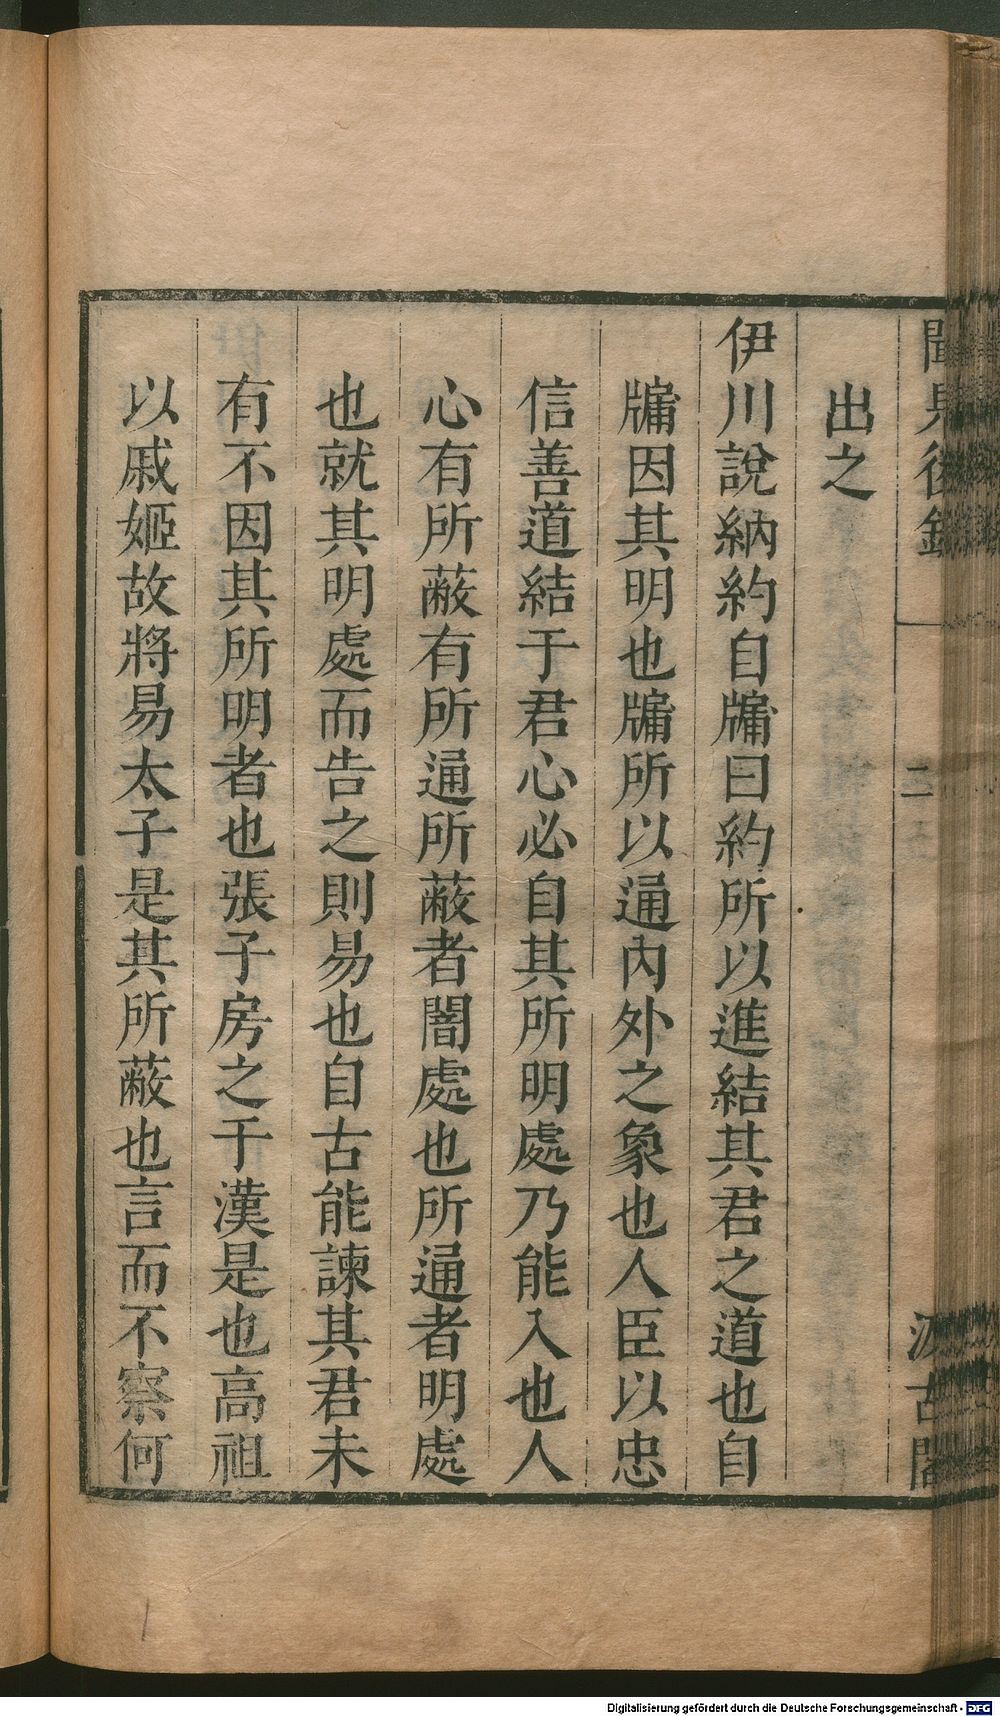 聞見後錄
二
汲古閣
出之
伊川說納約自牖曰約所以進結其君之道也自
牖因其明也牖所以通內外之象也人臣以忠
信善道結于君心必自其所明處乃能入也人
心有所蔽有所通所蔽者闇處也所通者明處
也就其明處而告之則易也自古能諫其君未
有不因其所明者也張子房之于漢是也高祖
以戚姬故將易太子是其所蔽也言而不察何
Digitalisierung gefördert durch die Deutsche Forschungsgemeinschaft - DFG